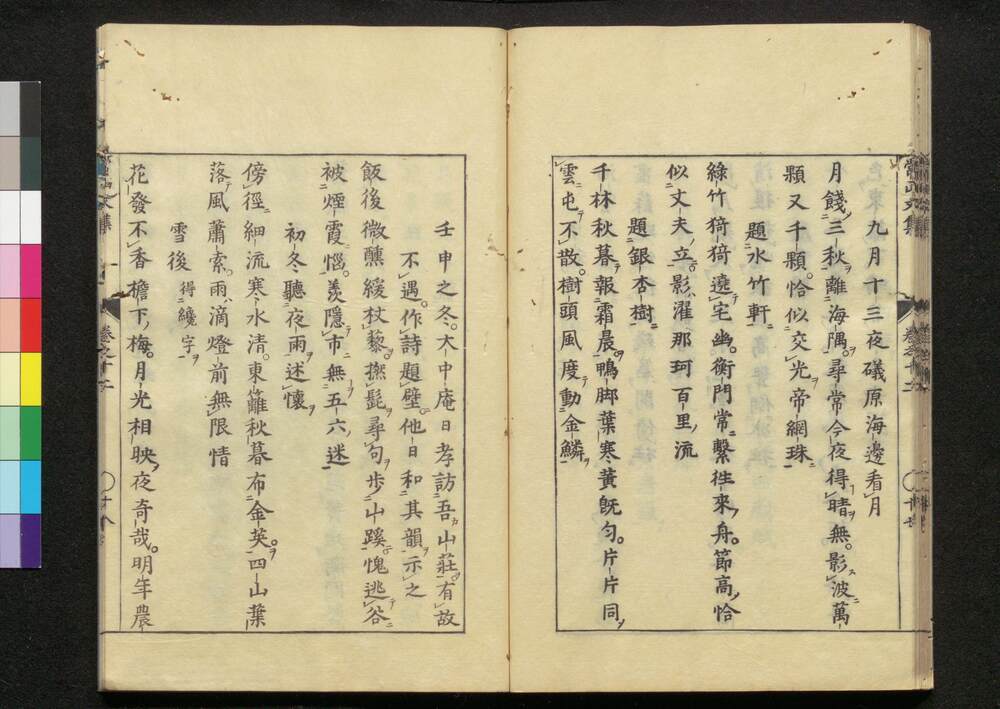 九月十三夜礒原海邊看月
月餞三秋離海隅。尋常今夜得晴無。影波萬
顆又千顆。恰似交光帝網珠
題水竹軒
綠竹猗猗遶宅幽。衡門常繫徃來舟。節高恰
似丈夫立。影濯那珂百里流
題銀杏樹
千林秋暮報霜晨。鴨脚葉寒黄既匀。片片同
雲屯不散。樹頭風度動金鱗
壬申之冬。大中庵日孝訪吾山莊。有故
不遇。作詩題壁。他日和其韻示之
飯後微醺緩杖藜。撫髭尋句步山蹊。愧逃谷
被煙霞惱。羡隱市無五六迷
初冬聽夜雨述懷
傍徑細流寒水清。東籬秋暮布金英。四山葉
落風蕭索。雨滴燈前無限情
雪後 得纔字
花發不香檐下梅。月光相映夜奇哉。明年農
常山文集
卷之十二